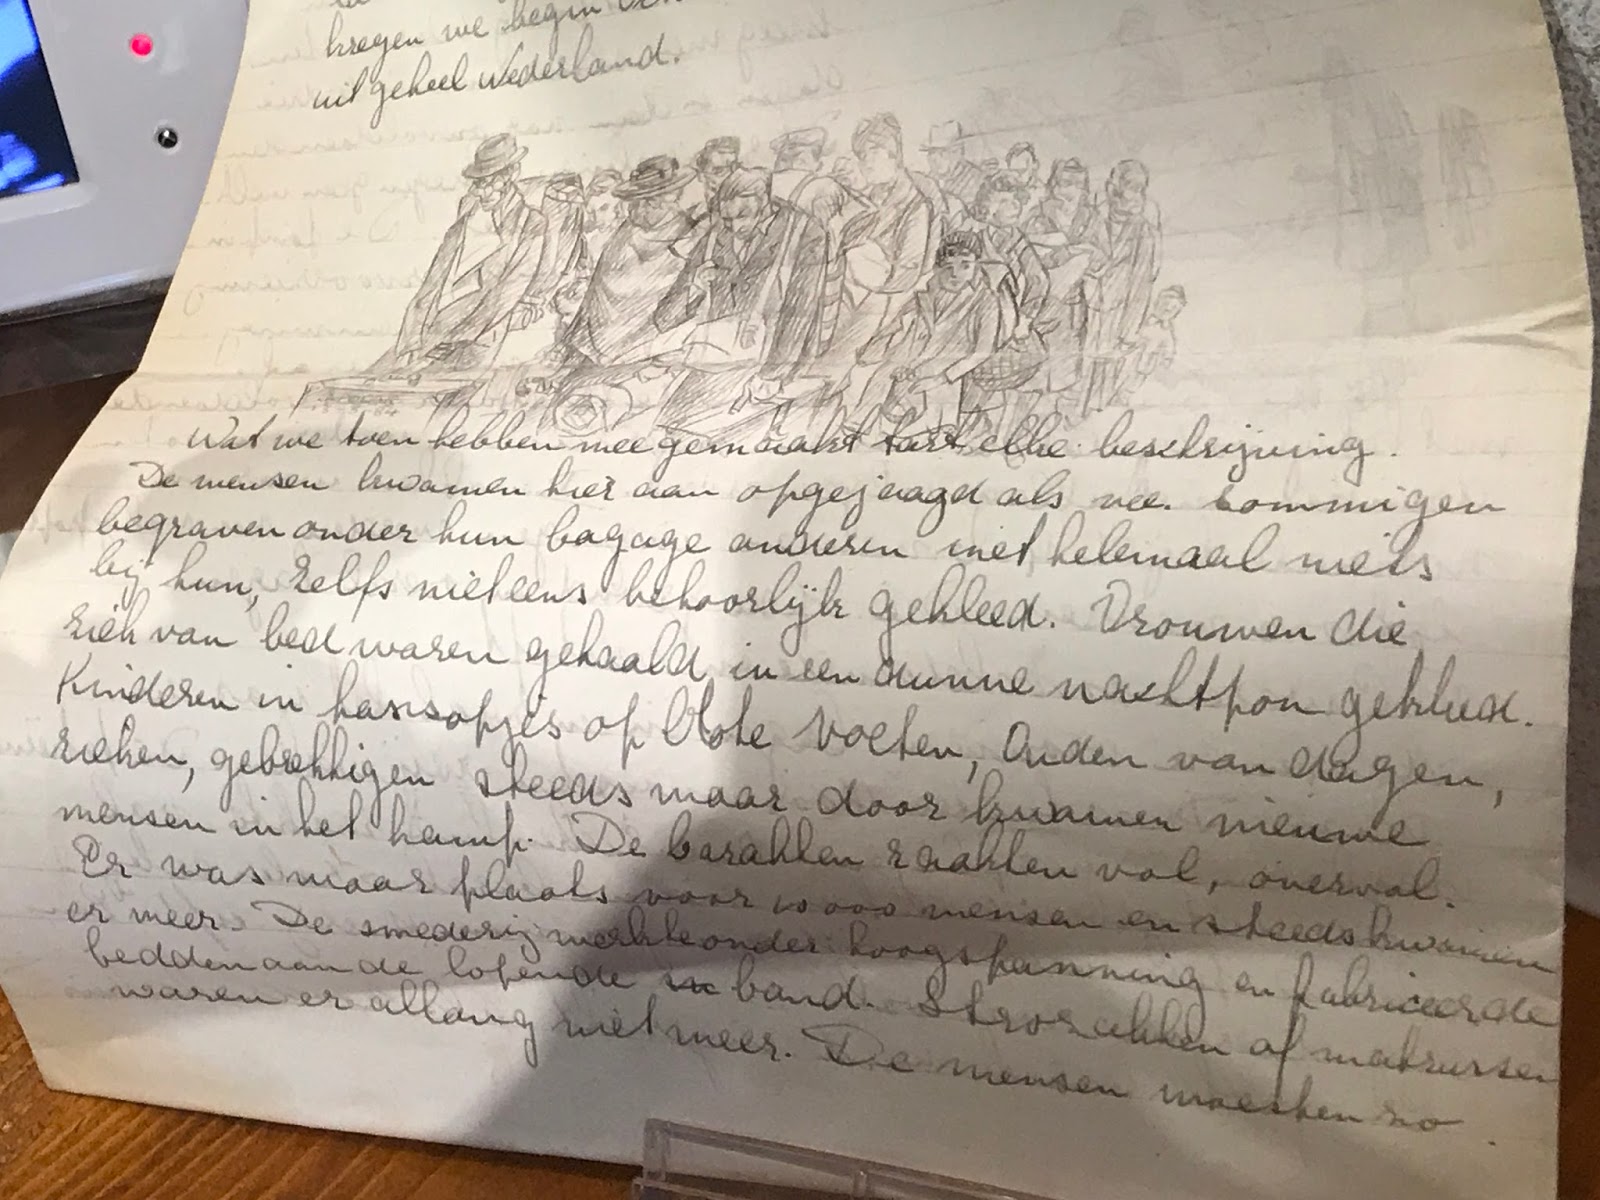 kregen we begin
uit geheel Nederland.
Wat we toen hebben meegemaakt tart elke beschrijving.
De mensen kwamen hier aan opgejaagd als vee. Sommigen
begraven onder hun bagage anderen met helemaal niets
bij hun, zelfs niet eens behoorlijk gekleed. Vrouwen die
ziek van bed waren gehaald in een dunne nachtpon gekleed.
Kinderen in hansopjes op blote voeten, Ouden van dagen,
zieken, gebrekkigen steeds maar door kwamen nieuwe
mensen in het kamp. De barakken raakten vol, overvol.
Er was maar plaats voor 10000 mensen en steeds kwamen
er meer. De smederij werkte onder hoogspanning en fabriceerde
bedden aan de lopende band. Strozakken of matrassen
waren er allang niet meer. De mensen moesten zo